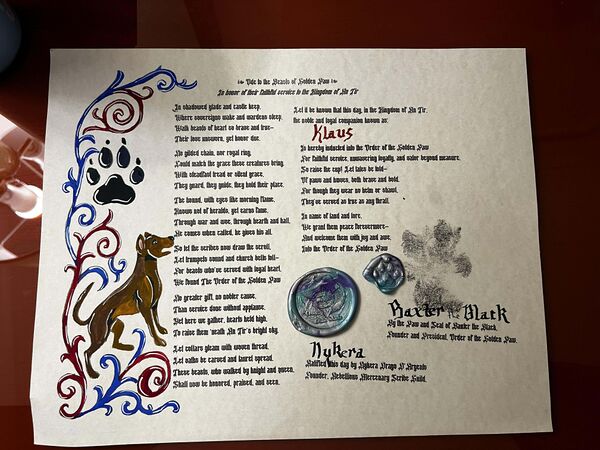 Ode to the Beasts of Golden Paw
In honor of their faithful service to the Kingdom of An Tir
In shadowed glade and castle keep,
Where sovereigns wake and wardens sleep,
Walk beasts of heart so brave and true—
Their love unsworn, yet honor due.
No gilded chain, nor royal ring,
Could match the grace these creatures bring.
With steadfast tread or silent grace,
They guard, they guide, they hold their place.
The hound, with eyes like morning flame,
Known not of heralds, yet earns fame.
Through war and woe, through hearth and hall,
He comes when called, he gives his all.
So let the scribes now draw the scroll,
Let trumpets sound and church bells toll—
For beasts who've served with loyal heart,
We found The Order of the Golden Paw
No greater gift, no nobler cause,
Than service done without applause.
Yet here we gather, hearts held high,
To raise them 'neath An Tir's bright sky.
Let collars gleam with woven thread,
Let oaths be carved and laurel spread.
These beasts, who walked by knight and queen,
Shall now be honored, praised, and seen.
Let it be known that this day, in the Kingdom of An Tir,
the noble and loyal companion known as:
Klaus
Is hereby inducted into the Order of the Golden Paw
For faithful service, unwavering loyalty, and valor beyond measure.
So raise the cup! Let tales be told—
Of paws and hooves, both brave and bold.
For though they wear no helm or shawl,
They've served as true as any thrall.
In name of land and lore,
We grant them peace forevermore—
And welcome them with joy and awe,
Into the Order of the Golden Paw.
Baxter the Black
By the Paw and Seal of Baxter the Black,
Founder and President, Order of the Golden Paw.
Nykera
Ratified this day by Nykera Drago D'Argento
Founder, Rebellious Mercenary Scribe Guild.